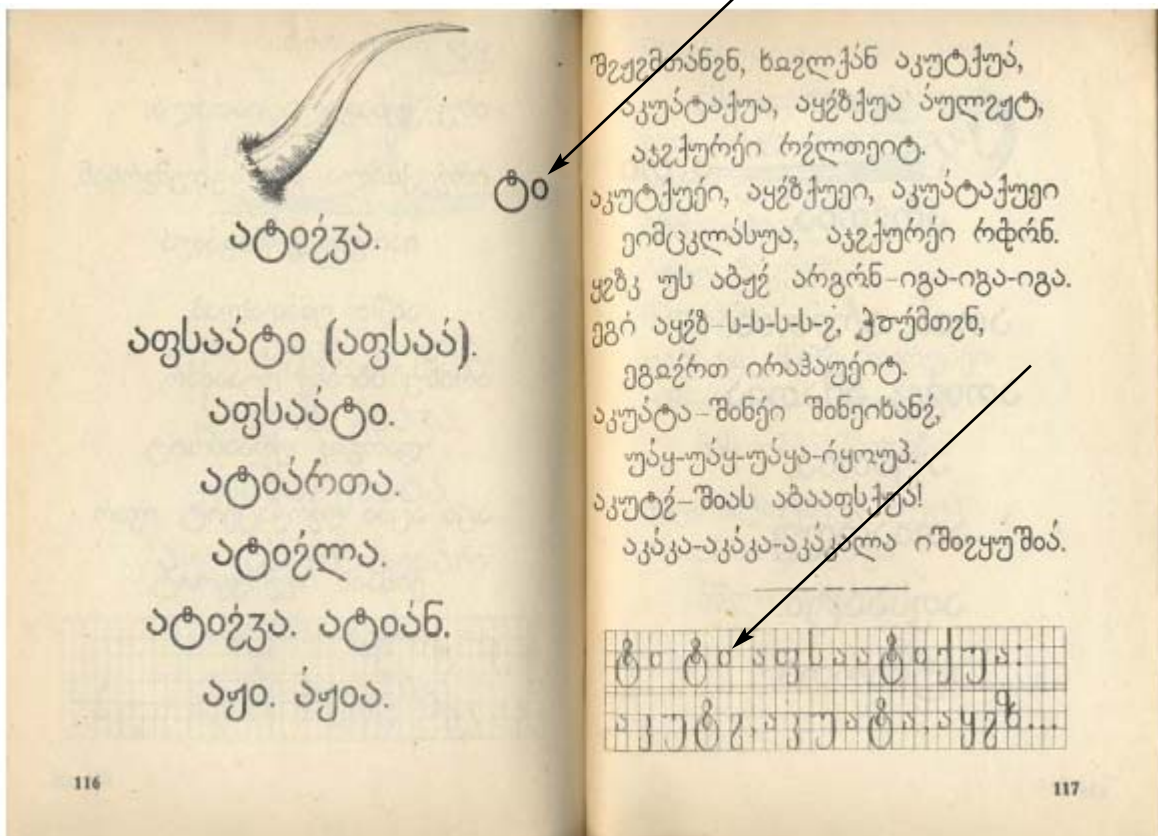 ტი
ატიჷ́ჳა.
აფსაა́ტი (აფსაა́).
აფსაა́ტი.
ატია́რთა.
ატიჷ́ლა.
ატიჷ́ჳა. ატია́ნ.
აჟი. ა́ჟია.
116
შჷჟჷმთა́ნჷნ, აკუტქუა́,
აკუა́ტაქუა, აყჷ́ზქუა ა́ულჷჟტ,
აჯჷქურე́ი რჷ́ლთეიტ.
აკუტქუე́ი, აყჷ́ზქუეი, აკუა́ტაქუეი
ეიმცკლა́სუა, აჯჷქურე́ი
ყჷზკ უს აბჟჷ́ -იგა-იგა-იგა.
ეგი́ აყჷ́ზ-ს-ს-ს-ს-ჷ,
ირაჰაუე́იტ.
აკუა́ტა-შინე́ი შინეიხანჷ́,
უა́ყ-უა́ყ-უა́ყა-
აკუტჷ́-შიას აბააფსქუა!
აკა́კა-აკა́კა-აკა́კალა იშიჷყუ́შია́.
ტი ტი აფსაატიქუა:
აკუტჷ, აკუატა, აყჷზ...
117